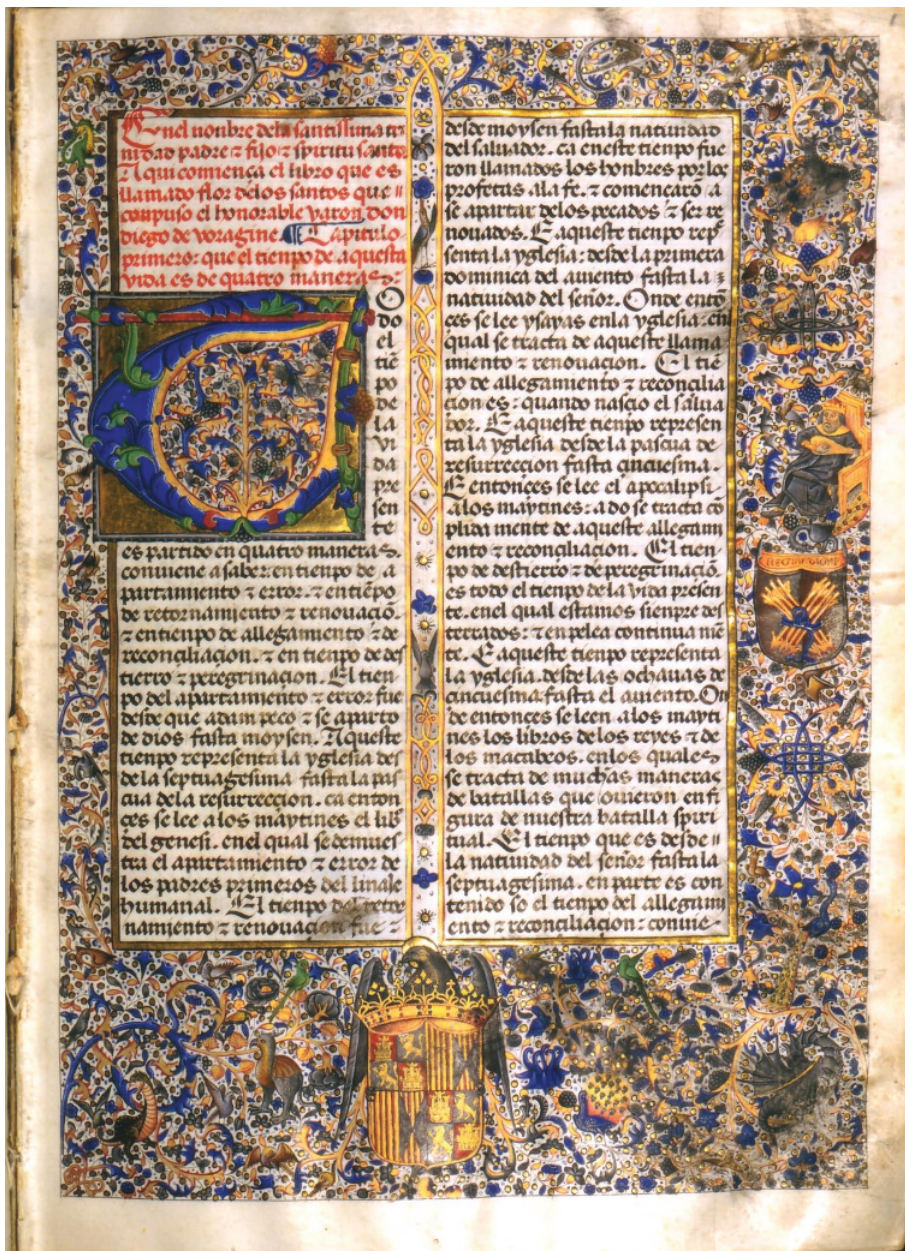 En el nonbre dela santissima tri
nidad padre ⁊ fijo ⁊ spiritu santo.
Aqui comiença el libro que es
llamado flor delos santos que
conpuso el honorable varon don
diego de voragine. ¶ Capitulo
primero: que el tiempo de aquesta
vida es de quatro maneras:
O
do
el
tiẽ
po
de
la
vi
da
pre
sen
te
es partido en quatro maneras.
conuiene a saber. en tienpo de a
partamiento ⁊ error. ⁊ en tiẽpo
de retornamiento ⁊ renouaciõ.
⁊ en tienpo de allegamiento ⁊ de
reconçiliaçion. ⁊ en tienpo de des
tierro ⁊ peregrinaçion. El tien
po del apartamiento ⁊ error fue
desde que adam peco ⁊ se aparto
de dios fasta moysen. Aqueste
tienpo representa la yglesia des
de la septuagesima fasta la pas
cua dela resurreccion. ca enton
ces se lee a los maytines el lib
del genesi. en el qual se demues
tra el apartamiento ⁊ error de
los padres primeros del linaje
humanal. El tienpo del retor
namiento ⁊ renouaçion fue ⁊
desde moysen fasta la natiuidad
del saluador. ca en este tienpo fue
ron llamados los honbres por los
profetas a la fe. ⁊ començarõ a
se apartar delos pecados ⁊ ser re
nouados. E aqueste tienpo rep
senta la yglesia: desde la primera
dominica del auiento fasta la
natiuidad del señor. Onde entõ
ces se lee ysayas enla yglesia. en
qual se tracta de aqueste llama
miento ⁊ renouaçion. El tiẽ
po de allegamiento ⁊ reconcilia
cion es: quando nascio el salua
dor. E aqueste tienpo represen
ta la yglesia desde la pascua de
resurreccion fasta cincuesma.
E entonçes se lee el apocalipsi
a los maytines: a do se tracta cõ
plida mente de aqueste allegam
iento ⁊ reconçiliacion. El tien
po de destierro ⁊ de peregrinaçiõ
es todo el tienpo de la vida presẽ
te. en el qual estamos sienpre des
terrados: ⁊ en pelea continua mẽ
te. E aqueste tienpo representa
la yglesia. desde las ochauas de
cincuesma fasta el auiento. On
de entonces se leen a los mayti
nes los libros de los reyes ⁊ de
los macabeos. en los quales
se tracta de muchas maneras
de batallas que ouieron en fi
gura de nuestra batalla spiri
tual. El tienpo que es desde
la natiuidad del señor fasta la
septuagesima. en parte es con
tenido so el tienpo del allegami
ento ⁊ reconciliaçion ⁊ conuie